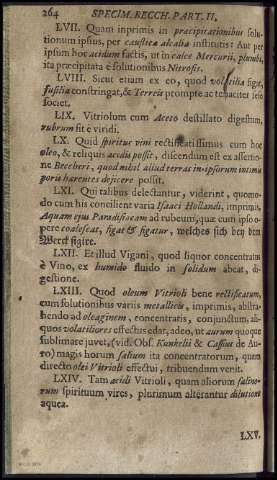 264 SPECIM. BECCH. PART. II.
LVII. Quam inprimis in præcipitationibus solu-
tionum ipsius, per caustica alcalia instituis: Aut per
ipsum hoc acidum factis, ut in calce Mercurii, plumbi,
ita præcipitata è solutionibus Nitrosis.
LVIII. Sicut etiam ex eo, quod volatilia figat,
fusilia constringat, & Terreis prompte ac tenaciter sese
societ.
LIX. Vitriolum cum Aceto destillato digestum,
rubrum fit è viridi.
LX. Quid spiritus vini rectificatissimus cum hoc
oleo, & reliquis acidis possit, discendum est ex assertio-
ne Beccheri, quod nihil aliud terras in ipsorum intimis
poris hærentes dejicere possit.
LXI. Qui talibus delectantur, viderint, quomo-
do cum his concilient varia Isaaci Hollandi, imprimis,
Aquam ejus Paradisiacam ad rubeum, quæ cum ipso
opere coalescat, figat & figatur, welches sich bey dem
Werck figire.
LXII. Et illud Vigani, quod liquor concentratus
è Vino, ex humido fluido in solidum abeat, di-
gestione.
LXIII. Quod oleum Vitrioli bene rectificatum,
cum solutionibus variis metallicis, imprimis, abstra-
hendo ad oleaginem, concentratis, conjunctum, ali-
quos volatiliores effectus edat, adeo, ut aurum quoque
sublimare juvet, (vid. Obs. Kunkelii & Cassius de Au-
ro) magis horum salium ita concentratorum, quam
directo olei Vitrioli effectui, tribuendum venit.
LXIV. Tam acidi Vitrioli, quam aliorum salino-
rum spirituum vires, plurimum alterantur dilutione
aquea.
LXV.